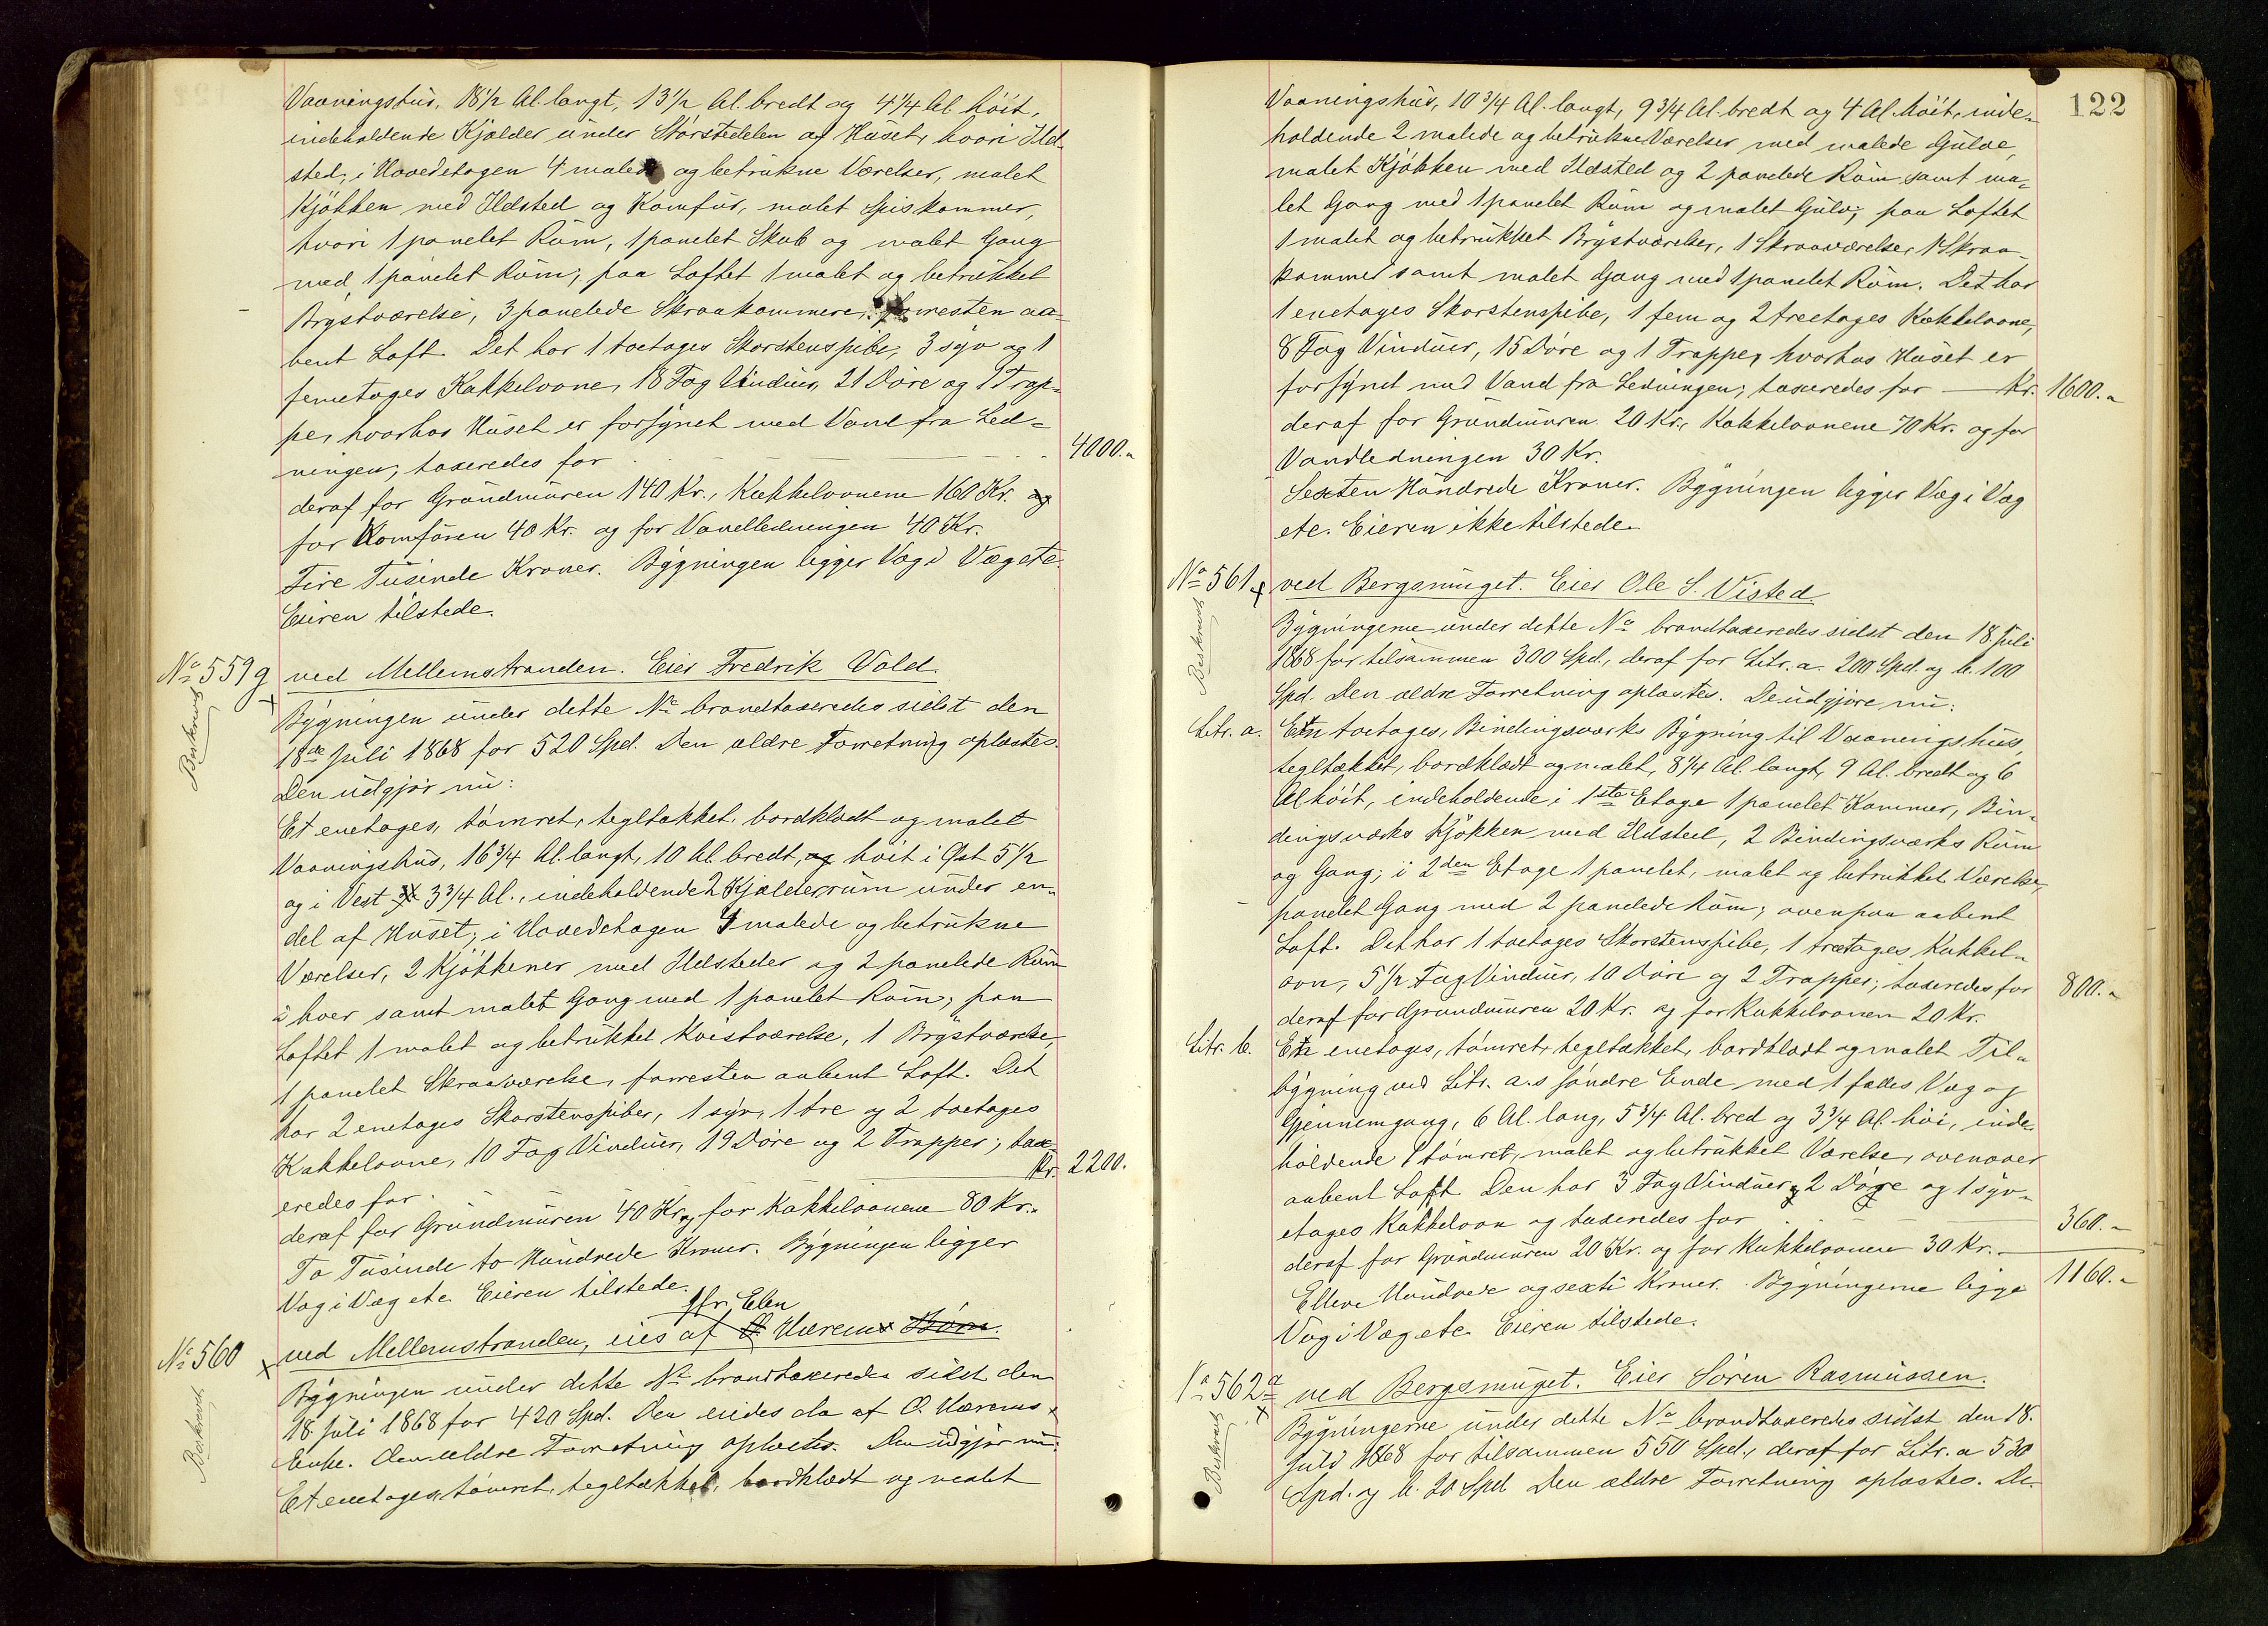 Vaaningshus, 18 1/2 Al. langt, 13 1/2 Al. bredt og 4 1/4 Al. höit,
indeholdende Kjælder under Størstedelen af Huset, hvori Ild-
sted; i Hovedetagen 4 malede og betrukne Værelser, malet
Kjøkken med Ildsted og Komfur, malet Spiskammer,
hvori 1 panelet Rum, 1 panelet Skab og malet Gang
med 1 panelet Rum; paa Loftet 1 malet og betrukket
Brystværelse, 3 panelede Skraakammere, forresten aa-
bent Loft. Det har 1 toetages Skorstenspibe, 3 syv og 1
femetages Kakkelovne, 18 Fag Vinduer, 21 Døre og 1 Trap-
pe, hvorhos Huset er forsynet med Vand fra Led-
ningen; taxeredes for 4000.-
deraf for Grundmuren 140 Kr., Kakkelovnene 160 Kr. og
for Komfuren 40 Kr. og for Vandledningen 40 Kr.
Fire Tusinde Kroner. Bygningen ligger Væg i Væg etc.
Eieren tilstede.
No 559 g ved Mellemstranden. Eier Fredrik Vold.
Beskrevet
Bygningen under dette No brandtaxeredes sidst den
18de Juli 1868 for 520 Spd. Den ældre Forretning oplæstes.
Den udgjør nu:
Et enetages, tømret, tegltækket, bordklædt og malet
Vaaningshus, 16 3/4 Al. langt, 10 Al. bredt, og höit i Øst 5 1/2
og i Vest 3 3/4 Al., indeholdende 2 Kjælderrum under en-
del af Huset; i Hovedetagen 4 malede og betrukne
Værelser, 2 Kjøkkener med Ildsteder og 2 panelede Rum
i hver samt malet Gang med 1 panelet Rum; paa
Loftet 1 malet og betrukket Kvistværelse, 1 Brystværelse,
1 panelet Skraaværelse, forresten aabent Loft. Det
har 2 enetages Skorstenspiber, 1 syv, 1 tre og 2 toetages
Kakkelovne, 10 Fag Vinduer, 19 Døre og 2 Trapper; tax-
eredes for Kr. 2200.
deraf for Grundmuren 40 Kr. og for Kakkelovnene 80 Kr.
To Tusinde to Hundrede Kroner. Bygningen ligger
Væg i Væg etc. Eieren tilstede.
Jfr. Elen
No 560 ved Mellemstranden, eies af O. Hærems Børn.
Beskrevet
Bygningen under dette No brandtaxeredes sidst den
18. Juli 1868 for 420 Spd. Den eiedes da af O. Hærems
Enke. Den ældre Forretning oplæstes. Den udgjør nu:
Et enetages, tømret, tegltækket, bordklædt og malet
122
Vaaningshus, 10 3/4 Al. langt, 9 3/4 Al. bredt og 4 Al. höit, inde-
holdende 2 malede og betrukne Værelser med malede Gulve,
malet Kjøkken med Ildsted og 2 panelede Rum samt ma-
let Gang med 1 panelet Rum og malet Gulv; paa Loftet
1 malet og betrukket Brystværelse, 1 Skraaværelse, 1 Skraa-
kammer samt malet Gang med 1 panelet Rum. Det har
1 enetages Skorstenspibe, 1 fem og 2 treetages Kakkelovne,
8 Fag Vinduer, 15 Døre og 1 Trappe, hvorhos Huset er
forsynet med Vand fra Ledningen; taxeredes for Kr. 1600.-
deraf for Grundmuren 20 Kr., Kakkelovnene 70 Kr. og for
Vandledningen 30 Kr.
Sexten Hundrede Kroner. Bygningen ligger Væg i Væg
etc. Eieren ikke tilstede.
No 561 ved Bergsmuget. Eier Ole S. Visted.
Beskrevet
Bygningerne under dette No brandtaxeredes sidst den 18. Juli
1868 for tilsammen 300 Spd., deraf for Litr. a. 200 Spd. og b. 100
Spd. Den ældre Forretning oplæstes. De udgjøre nu:
Litr. a. En toetages, Bindingsværks Bygning til Vaaningshus,
tegltækket, bordklædt og malet, 8 1/4 Al. langt, 9 Al. bredt og 6
Al höit, indeholdende i 1ste Etage 1 panelet Kammer, Bin-
dingsværks Kjøkken med Ildsted, 2 Bindingsværks Rum
og Gang; i 2den Etage 1 panelet, malet og betrukket Værelse,
panelet Gang med 2 panelede Rum; ovenpaa aabent
Loft. Det har 1 toetages Skorstenspibe, 1 treetages Kakkel-
ovn, 5 1/2 Fag Vinduer, 10 Døre og 2 Trapper; taxeredes for 800.-
deraf for Grundmuren 20 Kr. og for Kakkelovnen 20 Kr.
Litr. b. En enetages, tømret, tegltækket, bordklædt og malet Til-
bygning ved Litr. a.s søndre Ende med 1 fælles Væg og
Gjennemgang, 6 Al. lang, 5 3/4 Al. bred og 3 3/4 Al. höi, inde-
holdende 1 tømret, malet og betrukket Værelse, ovenover
aabent Loft. Den har 3 Fag Vinduer, 2 Døre og 1 syv-
etages Kakkelovn og taxeredes for 360.-
deraf for Grundmuren 20 Kr. og for Kakkelovnen 30 Kr.
Elleve Hundrede og sexti Kroner. Bygningerne ligge 1160.-
Væg i Væg etc. Eieren tilstede.
No 562 a ved Bergsmuget. Eier Sören Rasmussen.
Beskrevet
Bygningerne under dette No brandtaxeredes sidst den 18.
Juli 1868 for tilsammen 550 Spd., deraf for Litr. a 530
Spd. og b. 20 Spd Den ældre Forretning oplæstes. De-